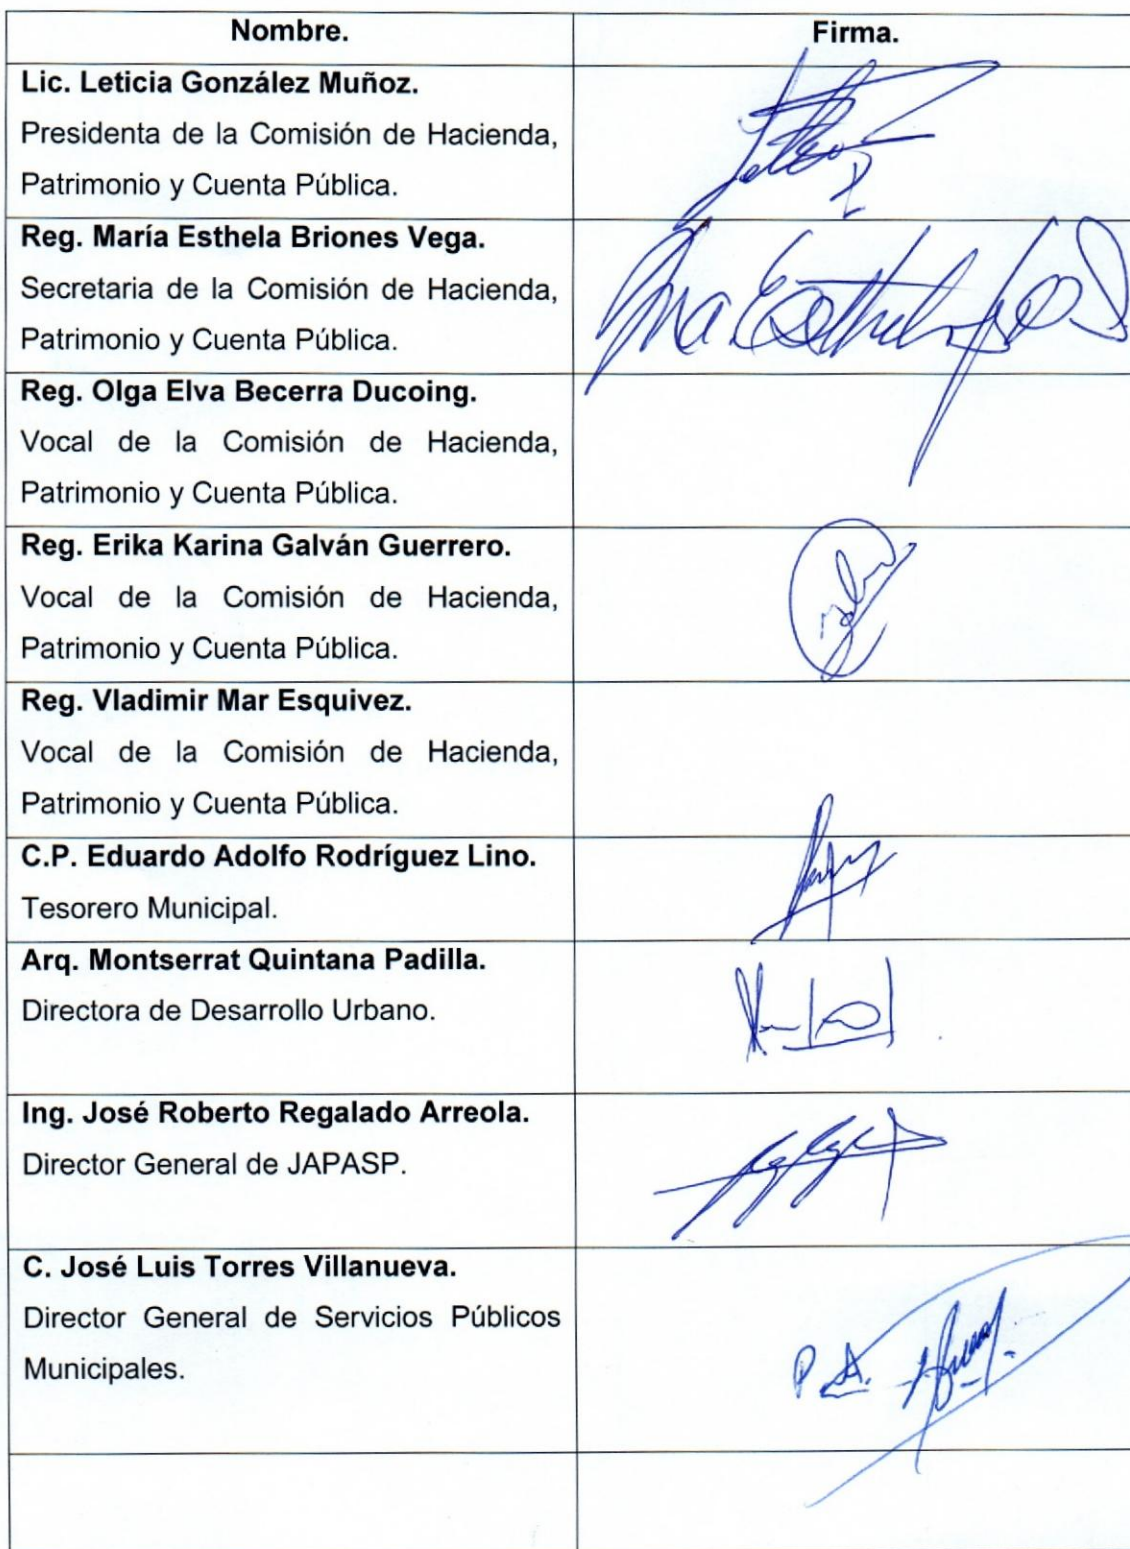 Nombre. Firma.
Lic. Leticia González Muñoz.
Presidenta de la Comisión de Hacienda,
Patrimonio y Cuenta Pública.
Reg. María Esthela Briones Vega.
Secretaria de la Comisión de Hacienda,
Patrimonio y Cuenta Pública.
Ma Esthela
Reg. Olga Elva Becerra Ducoing.
Vocal de la Comisión de Hacienda,
Patrimonio y Cuenta Pública.
Reg. Erika Karina Galván Guerrero.
Vocal de la Comisión de Hacienda,
Patrimonio y Cuenta Pública.
Reg. Vladimir Mar Esquivez.
Vocal de la Comisión de Hacienda,
Patrimonio y Cuenta Pública.
C.P. Eduardo Adolfo Rodríguez Lino.
Tesorero Municipal.
Arq. Montserrat Quintana Padilla.
Directora de Desarrollo Urbano.
Ing. José Roberto Regalado Arreola.
Director General de JAPASP.
C. José Luis Torres Villanueva.
Director General de Servicios Públicos
Municipales.
P. A.